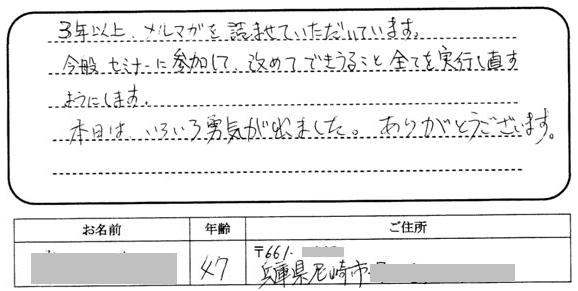 3年以上、メルマガを読ませていただいています。
今般セミナーに参加して、改めてできうること全てを実行し直す
ようにします。
本日は、いろいろ勇気が出ました。ありがとうございます。
お名前 年齢 ご住所
〒661-
47 兵庫県尼崎市